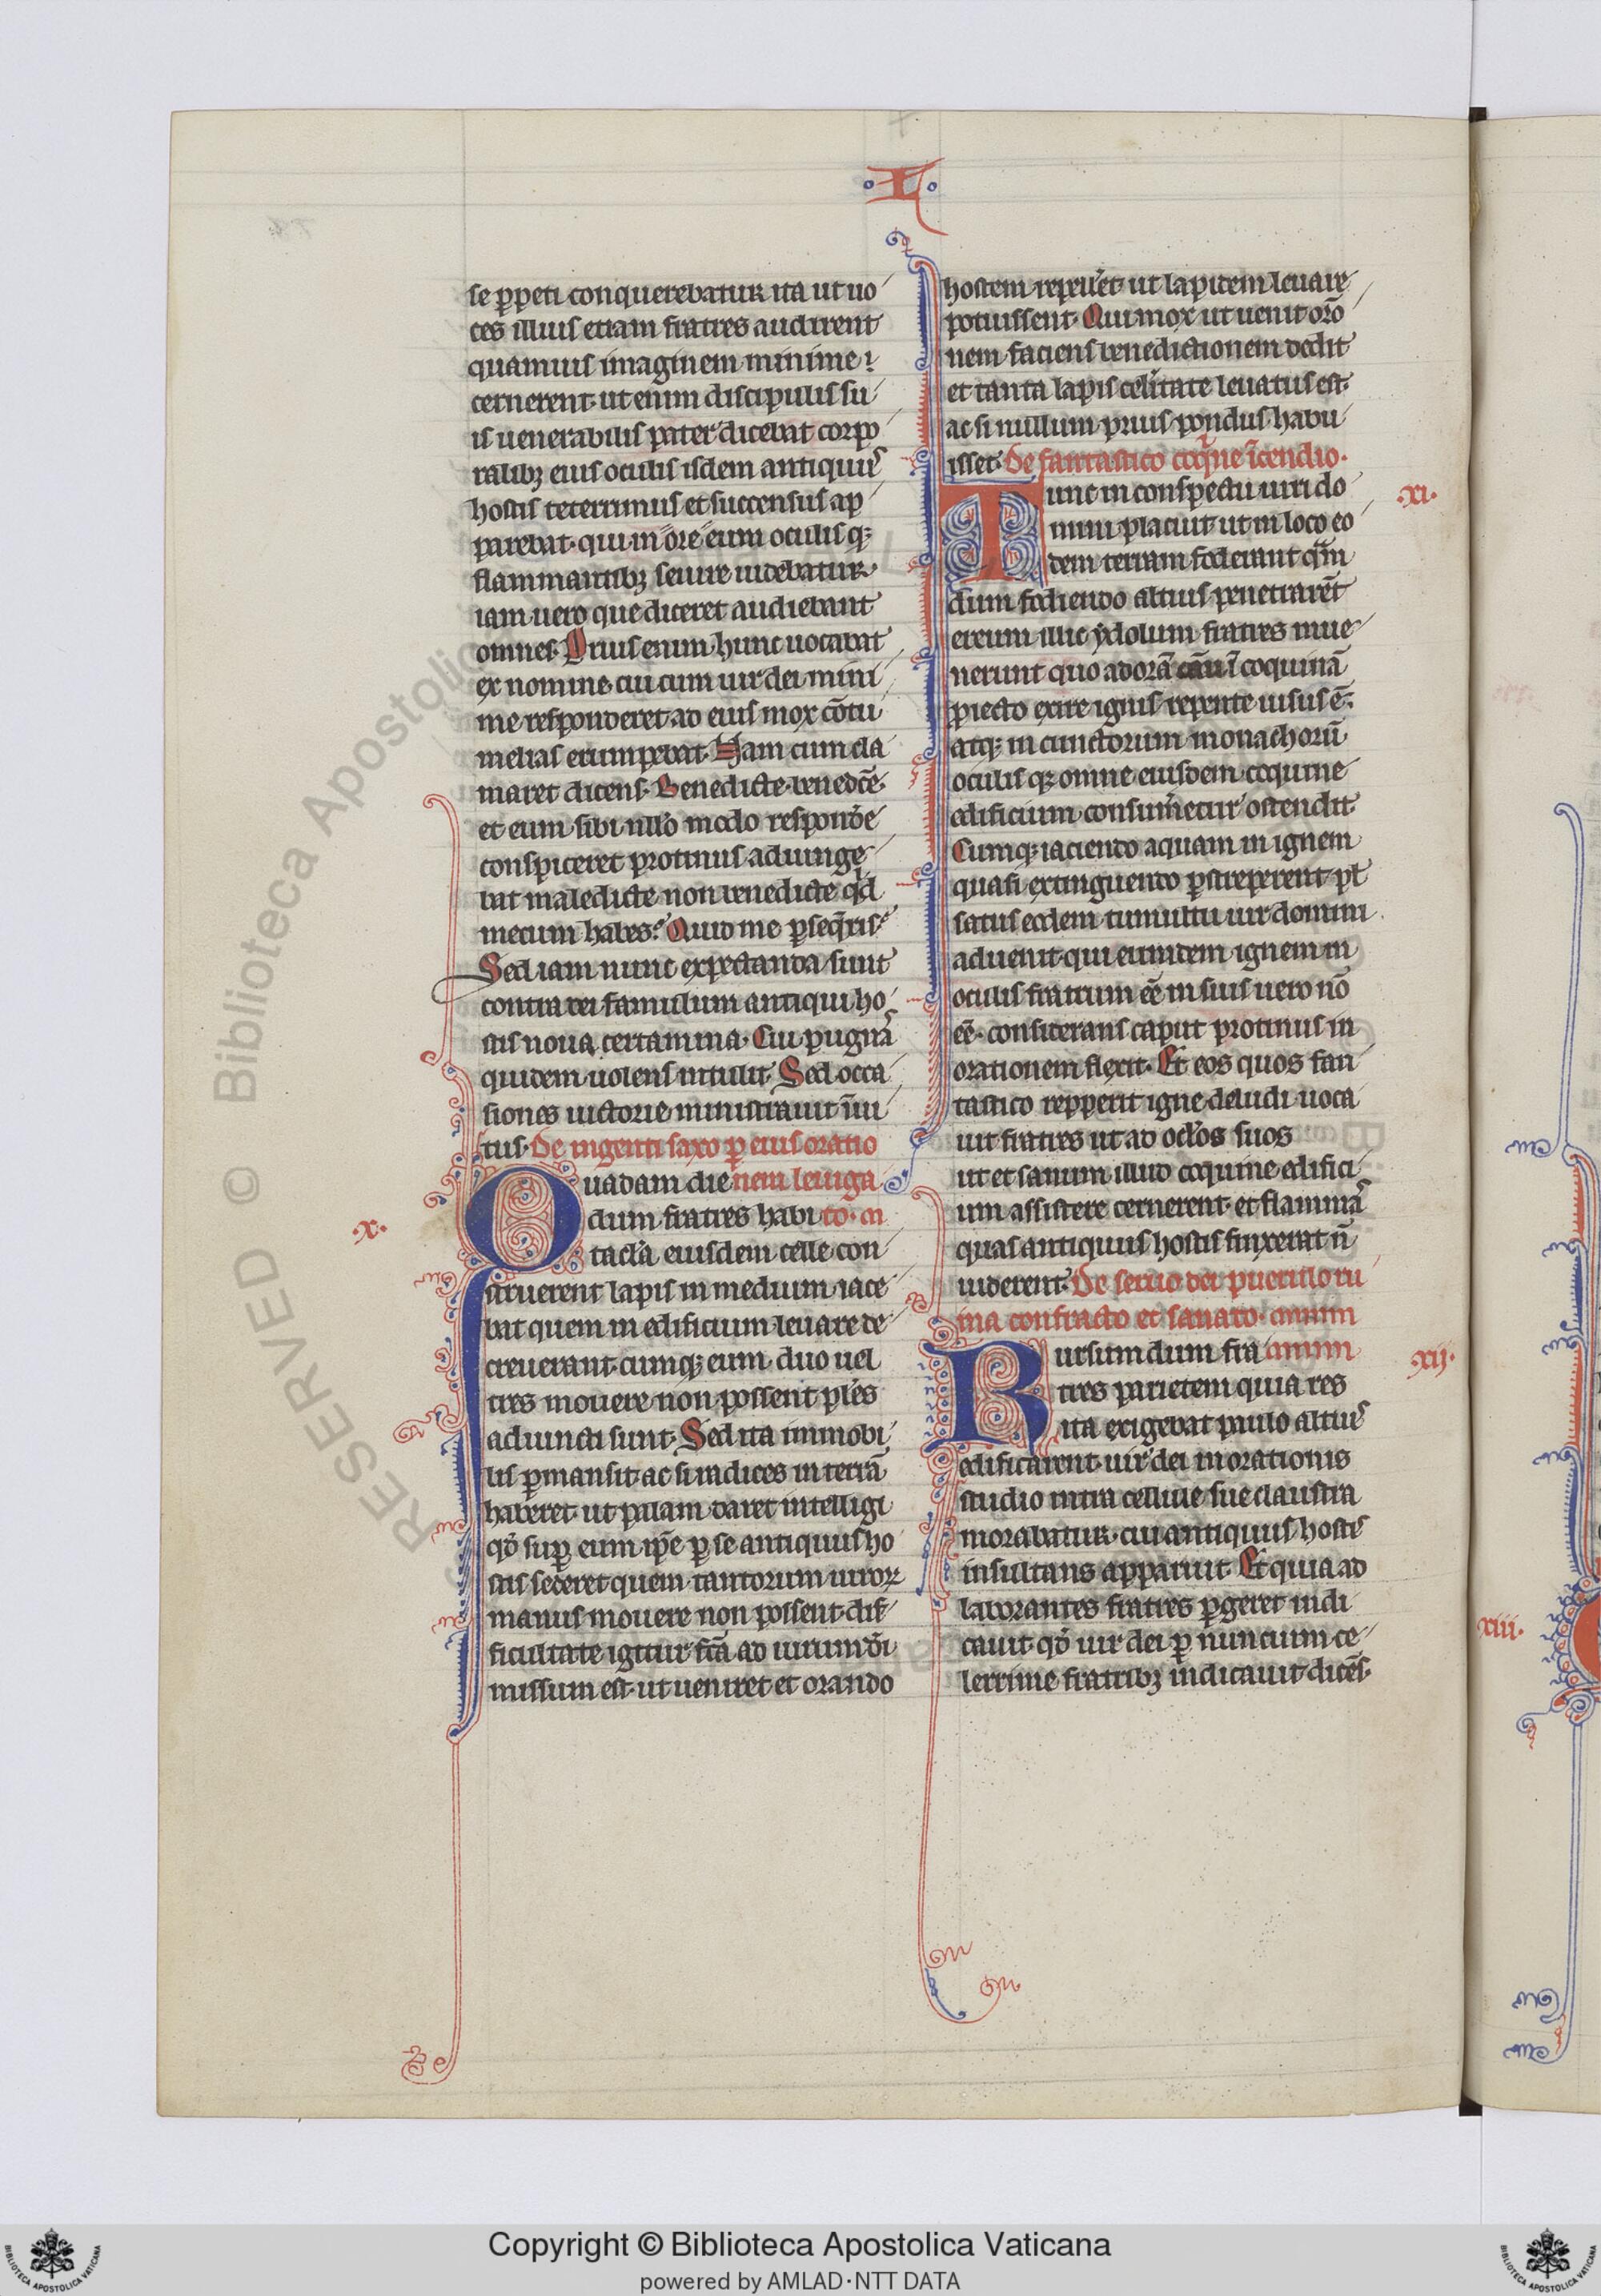 ·L·
se ꝑpeti conquerebatur ita ut uo
ces illius etiam fratres audirent
quamuis imaginem minime
cernerent· ut enim discipulis su
is uenerabilis pater dicebat corpo
ralibꝫ eius oculis isdem antiquus
hostis teterrimus et succensus ap
parebat· qui in ore eum oculis qꝫ
flammantibꝫ seuire uidebatur·
iam uero que diceret audiebant
omnes· Prius enim hunc uocabat
ex nomine· cui cum uir dei mini
me responderet· ad eius mox cōtu
melias erumpebat· Nam cum cla
maret dicens· Benedicte· benedc̄e·
et eum sibi nll'o modo respond'e
conspiceret protinus adiunge
bat maledicte non benedicte qͥd
mecum habes? Quid me ꝑseq̄ris?
Sed iam nunc expectanda sunt
contra dei famulum antiqui ho
stis noua certamina· Cui pugnā
quidem uolens intulit· Sed occa
siones uictorie ministrauit īui
tus· De ingenti saxo ꝑ eius oratio
uadam die nem leuiga
dum fratres habi to· m
tacl'a eiusdem celle con
x·
struerent lapis in medium iace
bat quem in edificium leuare de
creuerant· cumqꝫ eum duo uel
tres mouere non possent pl'es
adiuncti sunt· Sed ita immobi
lis ꝑmansit ac si radices in terrā
haberet· ut palam daret intelligi
qd̄ suꝑ eum ip̄e ꝑ se antiquus ho
stis sederet quem tantorum uiroꝝ
manus mouere non possent· dif
ficultate igitur fc̄a ad uirum d̄i
missum est· ut ueniret et orando
hostem repell'et· ut lapidem leuare
potuissent· Qui mox ut uenit or̄o
nem faciens benedictionem dedit
et tanta lapis cel'itate leuatus est·
ac si nullum prius pondus habu
isset· De fantastico coqͥne īcendio·
Tunc in conspectu uiri do
mini placuit· ut in loco eo
dem terram foderant q̄m
·xi·
dum fodiendo altius penetrarēt
ereum illic ydolum fratres inue
nerunt quo ad orā ī coquinā
ꝓiecto exire ignis repente uisus ē·
atqꝫ in cunctorum monachorū
oculis qꝫ omne eiusdem coquine
edificium consum'etur ostendit
Cumqꝫ iaciendo aquam in ignem
quasi extinguendo ꝑstreperent pl'
satus eodem tumultu uir domini
aduenit· qui eumdem ignem in
oculis fratrum eē in suis uero nō
eē· considerans caput protinus in
orationem flexit· Et eos quos fan
tastico repperit igne deludi uoca
uit fratres ut ad oc'los suos
ut et sanum illud coquine edifici
um assistere cernerent· et flammā
quas antiquus hostis finxerat n̄
uiderent· De seruo dei puerulo ru
ina confracto et sanato· mmm
Rursum dum fra mmm
tres parietem quia res
ita exigebat paulo altius
·xij·
edificarent· uir dei in orationis
studio intra cellule sue claustra
morabatur· cui antiquus hostis
insultans apparuit· Et quia ad
laborantes fratres ꝑgeret indi
cauit· qd̄ uir dei ꝑ nuncium ce
lerrime fratribꝫ indicauit· dicēs·
xiii·
RESERVED © Biblioteca Apostolica
Copyright © Biblioteca Apostolica Vaticana
powered by AMLAD·NTT DATA
BIBLIOTECA APOSTOLICA VATICANA
BIBLIOTECA APOSTOLICA VATICANA